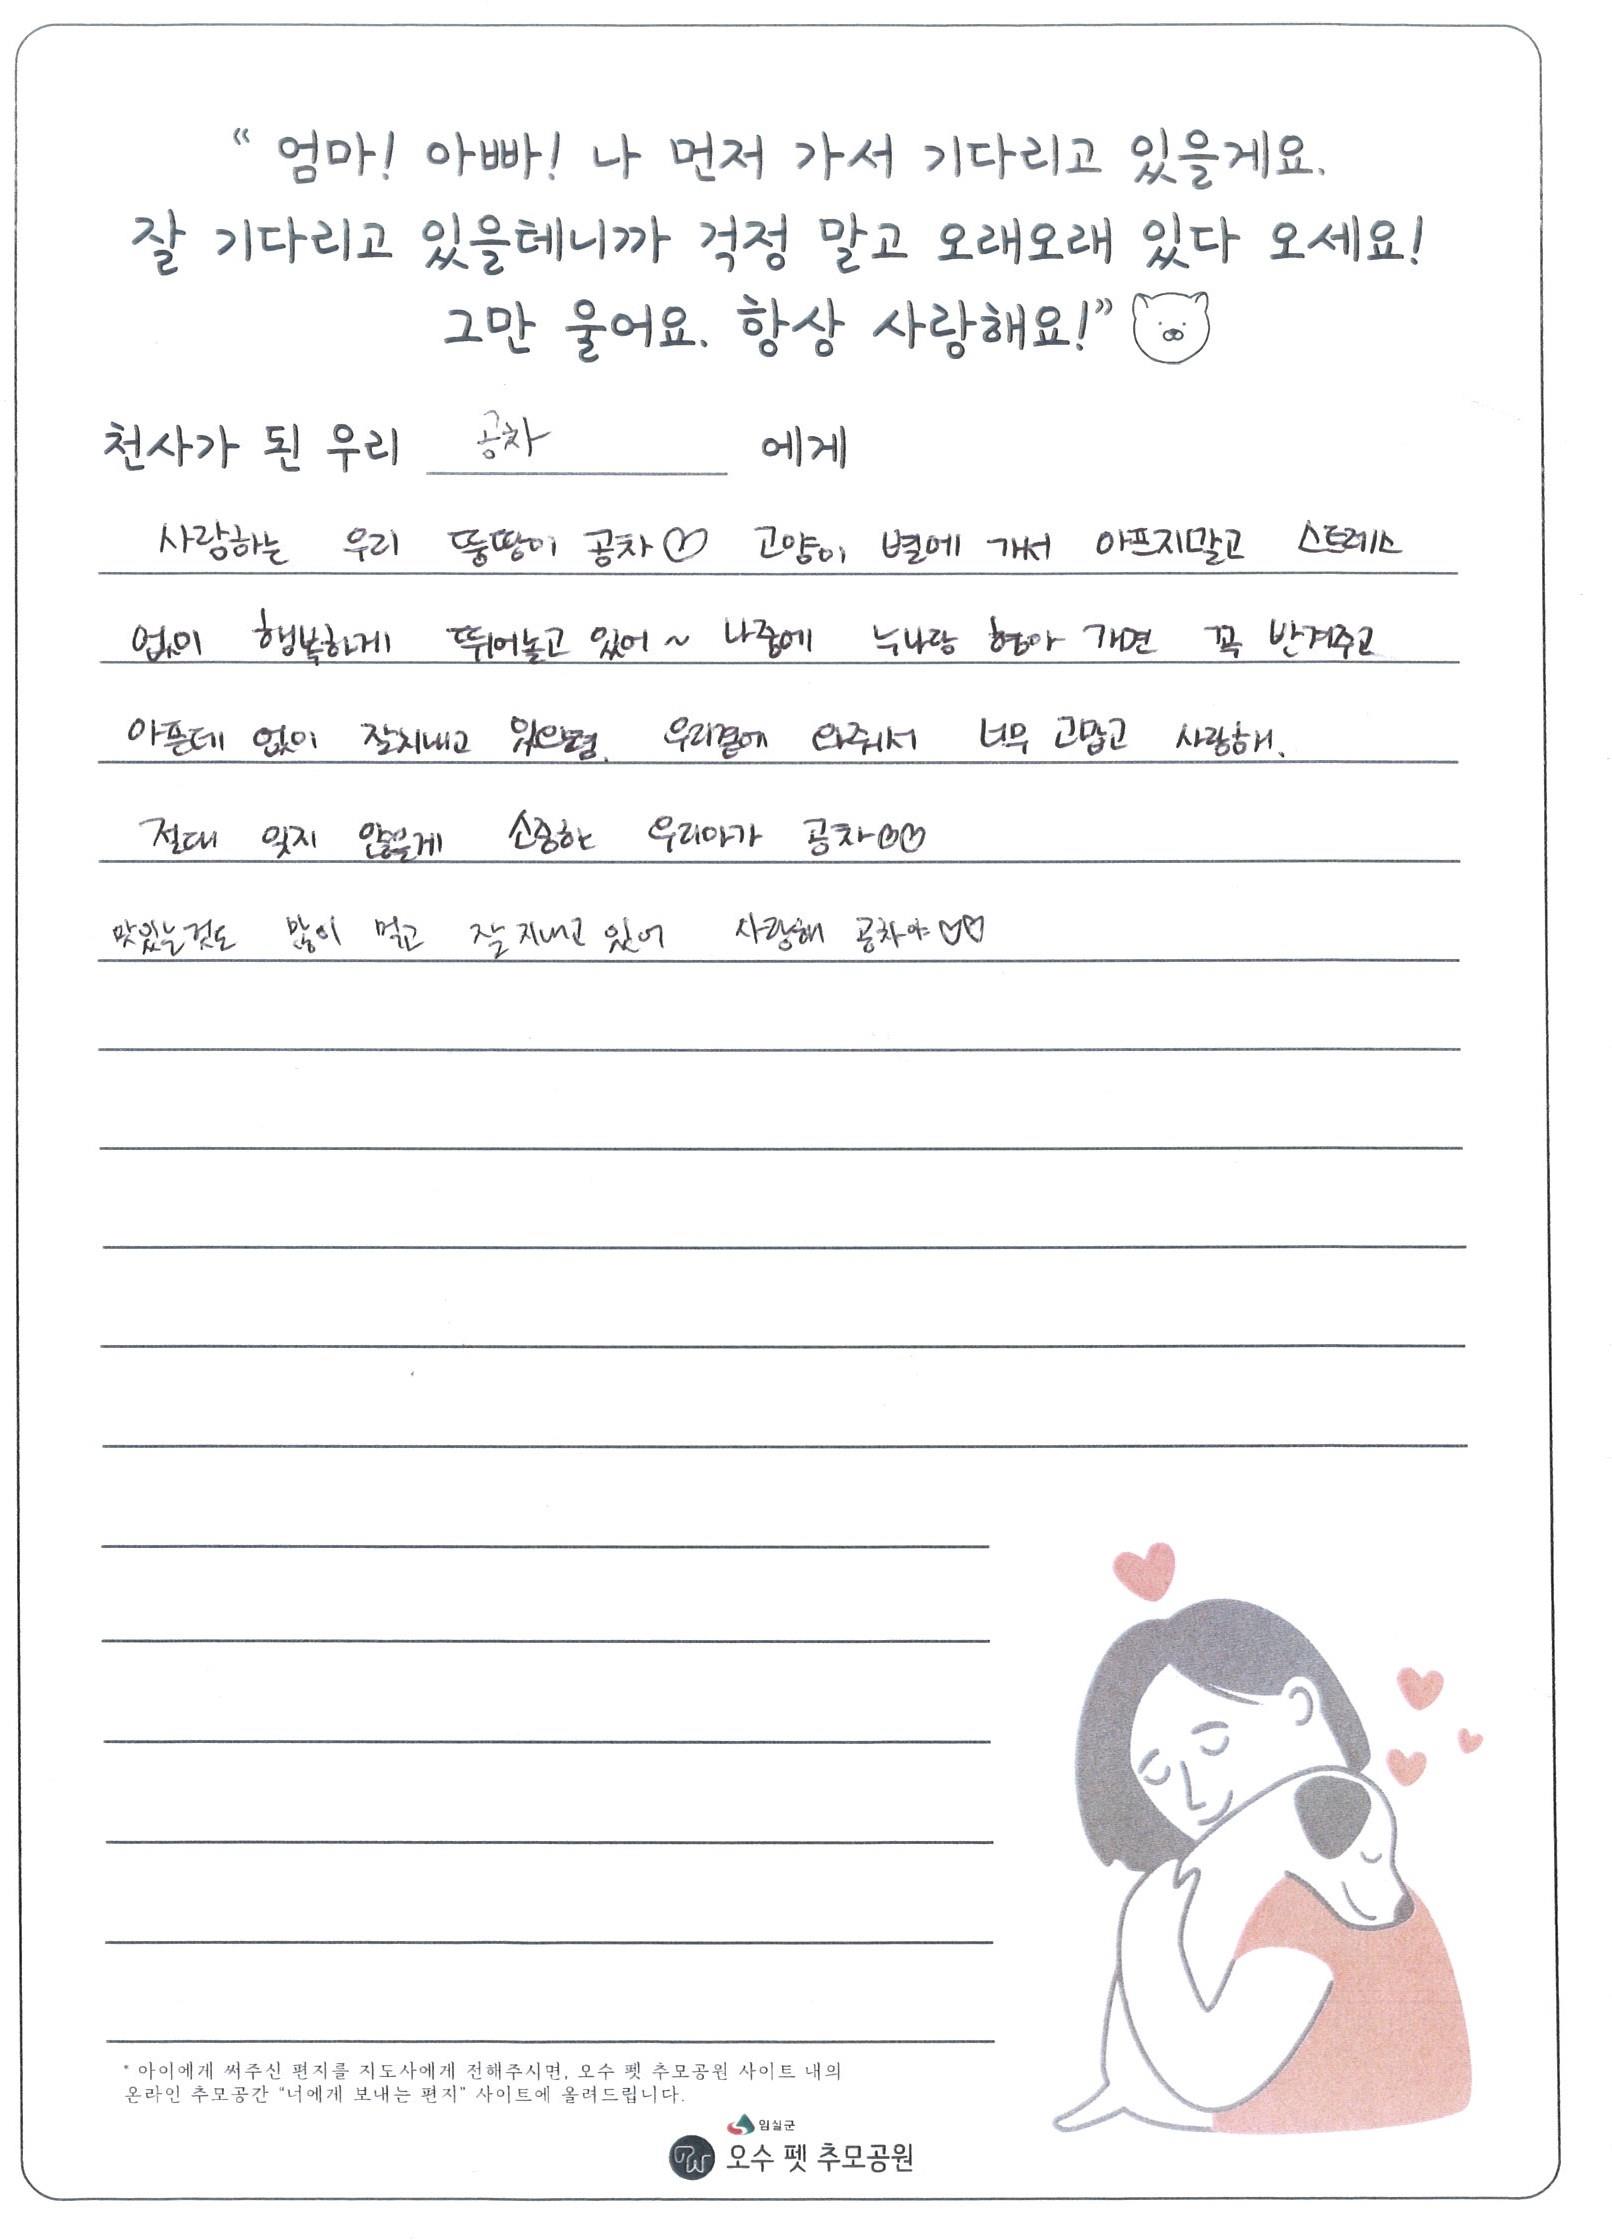 “ 엄마! 아빠! 나 먼저 가서 기다리고 있을게요.
잘 기다리고 있을테니까 걱정 말고 오래오래 있다 오세요!
그만 울어요. 항상 사랑해요!”
천사가 된 우리 공차 에게
사랑하는 우리 뚱땅이 공차♡ 고양이 별에 가서 아프지말고 스트레스
없이 행복하게 뛰어놀고 있어~ 나중에 누나랑 형아 가면 꼭 반겨주고
아픈데 없이 잘지내고 있으렴. 우리곁에 와줘서 너무 고맙고 사랑해.
절대 잊지 않을게 소중한 우리아가 공차♡♡
맛있는것도 많이 먹고 잘 지내고 있어 사랑해 공차야♡♡
* 아이에게 써주신 편지를 지도사에게 전해주시면, 오수 펫 추모공원 사이트 내의
온라인 추모공간 “너에게 보내는 편지” 사이트에 올려드립니다.
임실군
오수 펫 추모공원